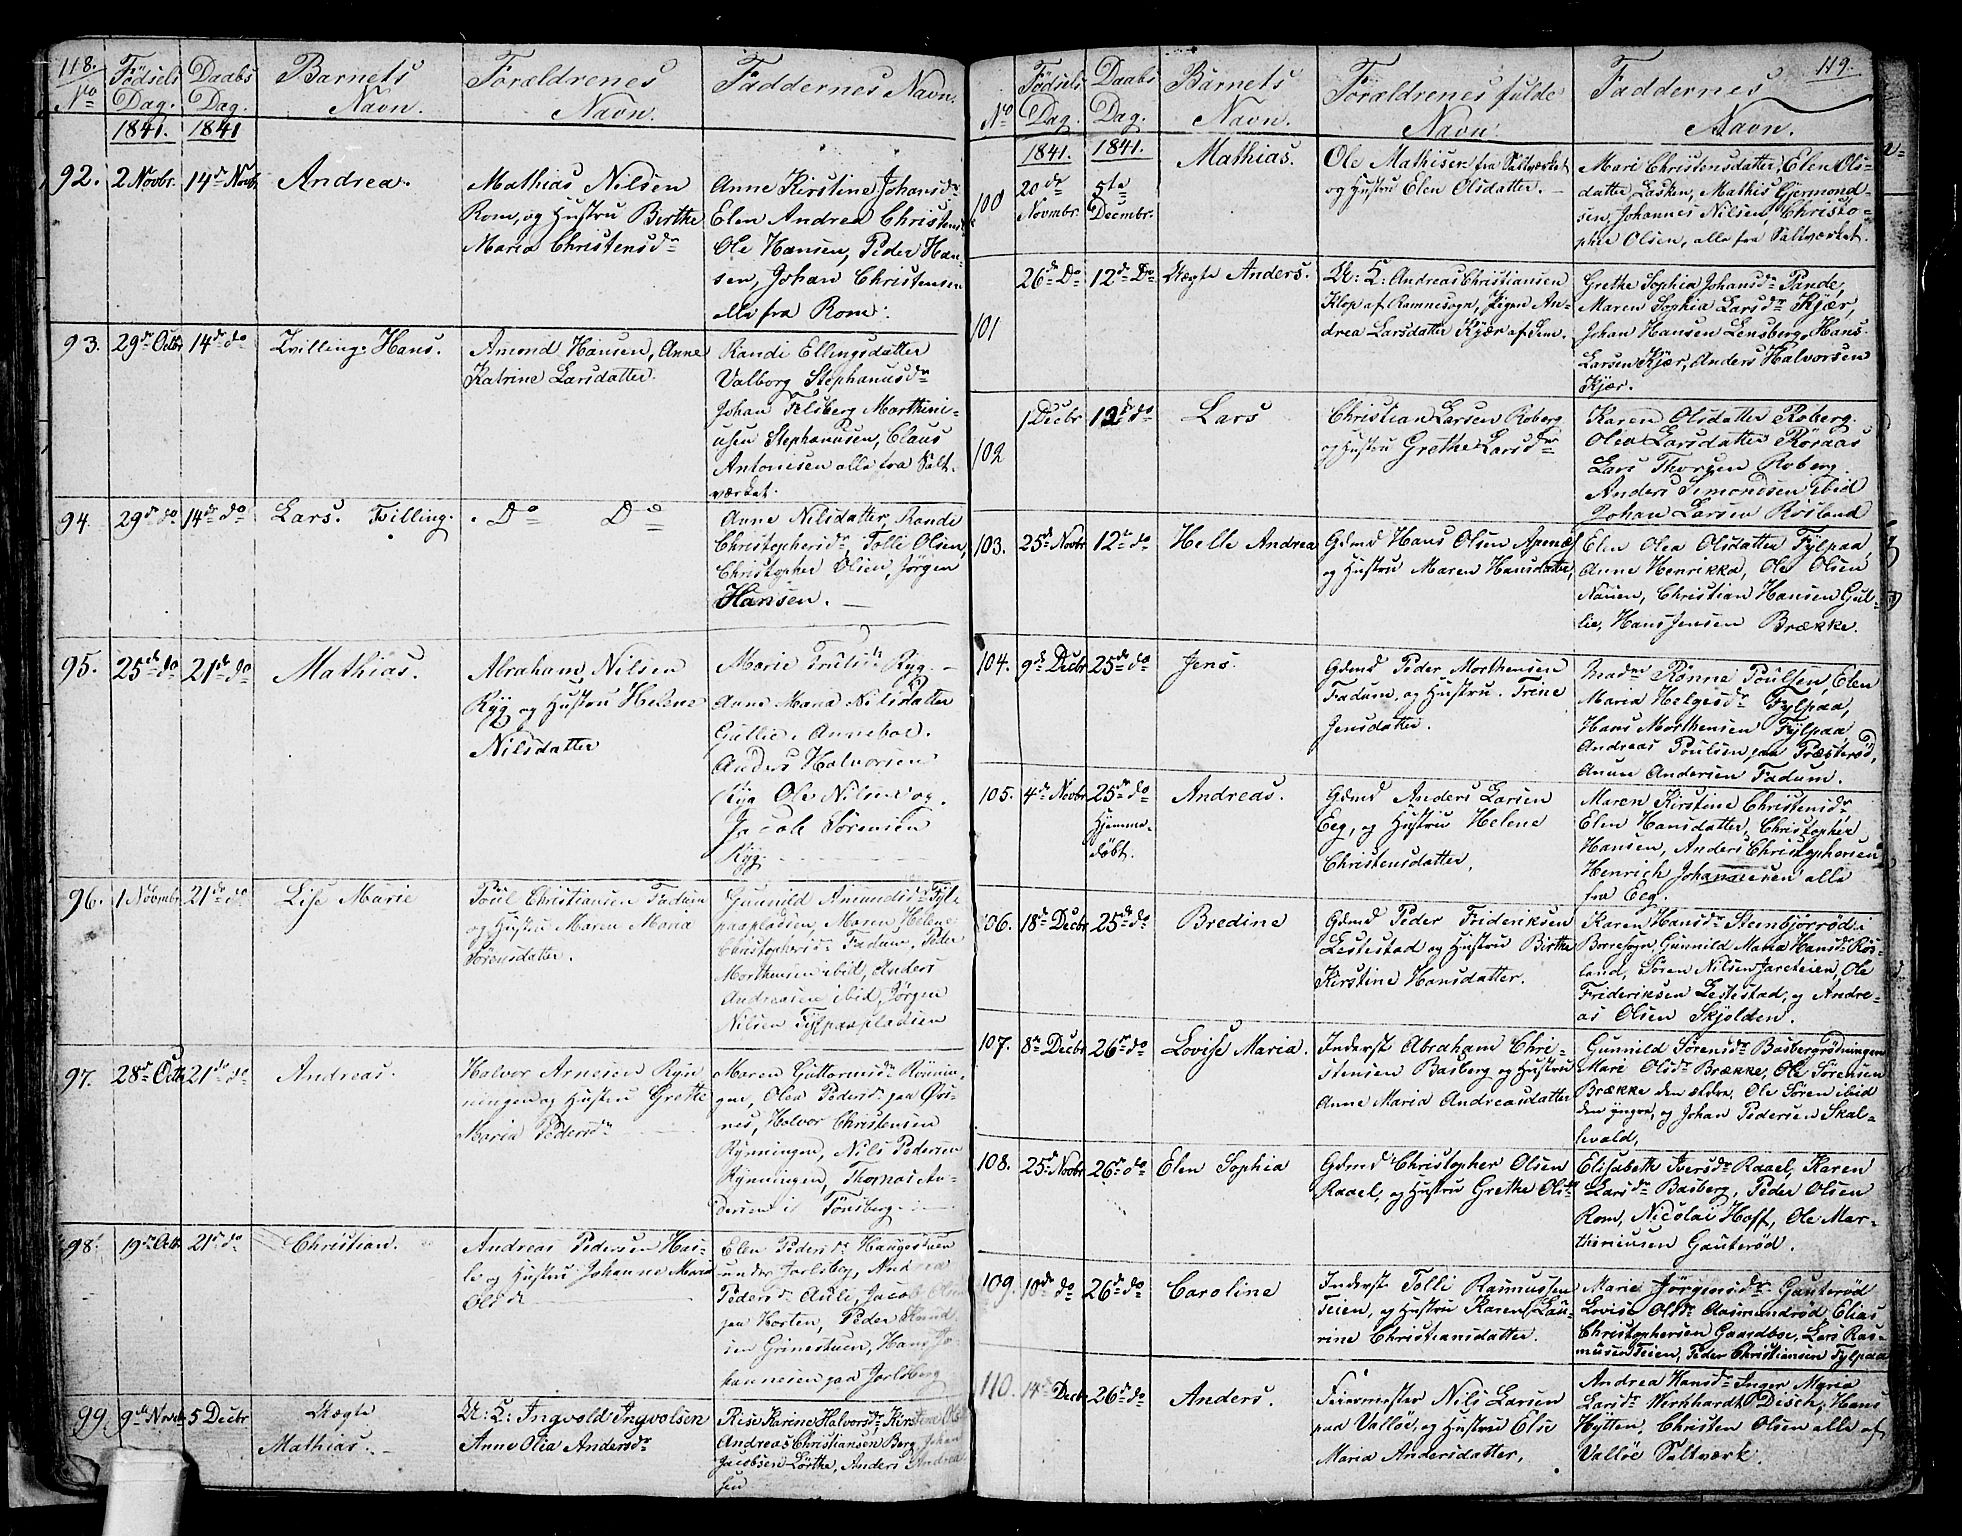 118.
No
Fødsels
Dag.
Daabs
Dag.
Barnets
Navn.
Forældrenes
Navn.
Faddernes Navn.
1841. 1841
92. 2 Novbr. 14de Novbr
Andrea.
Mathias Nilsen
Rom, og Hustru Birthe
Maria Christensdr
Anne Kirstine Johansdr
Elen Andrea Christens
Ole Hansen, Peder Han-
sen, Johan Christensen
alle fra Rom.
93. 29de Octbr 14de do
Tvilling: Hans.
Amond Hansen, Anne
Katrine Larsdatter.
Randi Ellingsdatter
Valborg Stephanusdr
Johan Filsberg Marthini-
usen Stephanusen, Claus
Antonisen alle fra Salt-
værket.
94 29de do 14de do
Lars. Tvilling.
Do Do
Anne Nilsdatter, Rande
Christophersdr, Tolli Olsen,
Christopher Olsen, Jørgen
Hansen.
95. 25de do 21de do
Mathias.
Abraham Nilsen
Ryg og Hustru Helene
Nilsdatter
Marie Trulsdr Ryg
Anne Maria Nilsdatter
Gullie, Anneboe.
Anders Halvorsen
Ryg Ole Nilsen og
Jacob Sørensen
Ryg.
96. 1 Novmbr 21de do
Lise Marie
Poul Christiansen Fadum
og Hustru Maren Maria
Sørensdatter.
Gunnild Amundsdr Fylpaa
pladsen, Maren Helene
Christophersdr Fadum, Peder
Morthensen ibid, Anders
Andreasen ibid, Jørgen
Nilsen Fylpaapladsen
97. 28de Octb 21de do
Andreas.
Halvor Arnesen Ryn
ningen og Hustru Grethe
Maria Pedersdr
Maren Guttormsdr Rønnin-
gen, Olea Pedersdr paa Øvi-
nes, Halvor Christensen
Rynningen, Nils Pedersen
Rynningen, Thomas An-
dersen i Tønsberg
98. 19de Octb 21de do
Christian.
Andreas Pedersen Has-
le og Hustru Johanne Maria
Olsdr
Elen Pedersdr Haugestuen
under Jarlsberg, Andrea
Pedersdr Auli, Jacob Olsen
paa Horten, Peder Knud
sen Grinestuen, Hans Jo-
hannesen paa Jarlsberg
99. 9de Novbr 5 Decbr
Uægte
Mathias.
U: E: Ingvold Ingvolsen
Anne Olia Andersdr
Rise Karine Halvorsdr, Kirstine Ols
Andreas Christiansen Berg, Johan
Jacobsen Lørthe, Anders Andrea
sen
119.
No
Fødsels
Dag.
Daabs
Dag.
Barnets
Navn.
Forældrenes fulde
Navn.
Faddernes
Navn.
1841. 1841.
100 20de Novmbr. 5te Decmbr.
Mathias.
Ole Mathisen fra Saltværket
og Hustru Elen Olsdatter.
Mari Christensdatter, Elen Ols-
datter Lasken, Mathis Gjermond-
sen, Johannes Nilsen, Christo-
pher Olsen, alle fra Saltværket.
101 26de Do 12de Do
Uægte Anders.
U: E: Andreas Christiansen
Klop af Ramnes sogn, Pigen An-
drea Larsdatter Kjær af Sem.
Grethe Sophia Johansdr Pande,
Maren Sophia Larsdr Kjær,
Johan Hansen Lensberg, Hans
Larsen Kjær, Anders Halvorsen
Kjær.
102 1 Decbr 12de do
Lars
Christian Larsen Roberg
og Hustru Grethe Larsdr
Karen Olsdatter Roberg.
Olea Larsdatter Røraas
Lars Thorsen Roberg.
Anders Simonsen ibid
Johan Larsen Røsland
103. 25de Novbr 12te do
Helle Andrea
Gdmd Hans Olsen Apenæs
og Hustru Maren Hansdatter,
Elen Olea Olsdatter Fylpaa,
Anne Henrikka, Ole Olsen
Nauen, Christian Hansen Gul-
lie, Hans Jensen Brække.
104. 9de Decbr 25de do
Jens.
Gdmd Peder Morthensen
Fadum, og Hustru Trine
Jensdatter.
Madm Rønne Poulsen, Elen
Maria Helgesdr Fylpaa,
Hans Morthensen Fylpaa,
Andreas Poulsen paa Præsterød,
Anun Andersen Fadum.
105. 4de Novbr 25de do
Hjemme-
døbt.
Andreas.
Gdmd Anders Larsen
Eeg, og Hustru Helene
Christensdatter,
Maren Kirstine Christensdr
Elen Hansdatter, Christopher
Hansen, Anders Christophersen
Henrich Johannesen alle
fra Eeg.
106. 18de Decbr 25de do
Bredine
Gdmd Peder Frideriksen
Lestestad og Hustru Birthe
Kirstine Hansdatter.
Karen Hansdr Steenbjørrød i
Borre sogn, Gunnild Maria Hansdr Røs-
land, Søren Nilsen Jareteien, Ole
Frideriksen Lestestad, og Andre-
as Olsen Skjolden.
107. 8de Decbr 26de do
Lovise Maria.
Inderst Abraham Chri-
stensen Basberg og Hustru
Anne Maria Andreasdatter
Gunnild Sørensdr Basbergrødningen
Mari Olsdr Brække, Ole Sørensen
Brække den ældre, Ole Søren ibid
den yngre, og Johan Pedersen Skal-
levald,
108. 25de Novbr 26de do
Elen Sophia
Gdmd Christopher Olsen
Raael, og Hustru Grethe Olsdr
Elisabeth Iversdr Raael, Karen
Larsdr Basberg, Peder Olsen
Rom, Nicolai Hoff, Ole Mar-
theniusen Gauterød.
109. 10de do 26de do
Caroline
Inderst Tolli Rasmussen
Teien, og Hustru Karen Lau-
rine Christiansdatter.
Marie Jørgensdr Gauterød
Lovise Olsdr Aasmundrød, Elias
Christophersen Gaasdboe, Lars Ras-
musen Teien, Peder Christiansen Fylpaa
110. 14de Decbr 26de do
Anders.
Fiirmester Nils Larsen
paa Valløe, og Hustru Else
Maria Andersdatter,
Andrea Hansdr Inger Maria
Larsdr Wernhardt Disch, Hans
Hytten, Christen Olsen alle af
Valløe Saltværk.